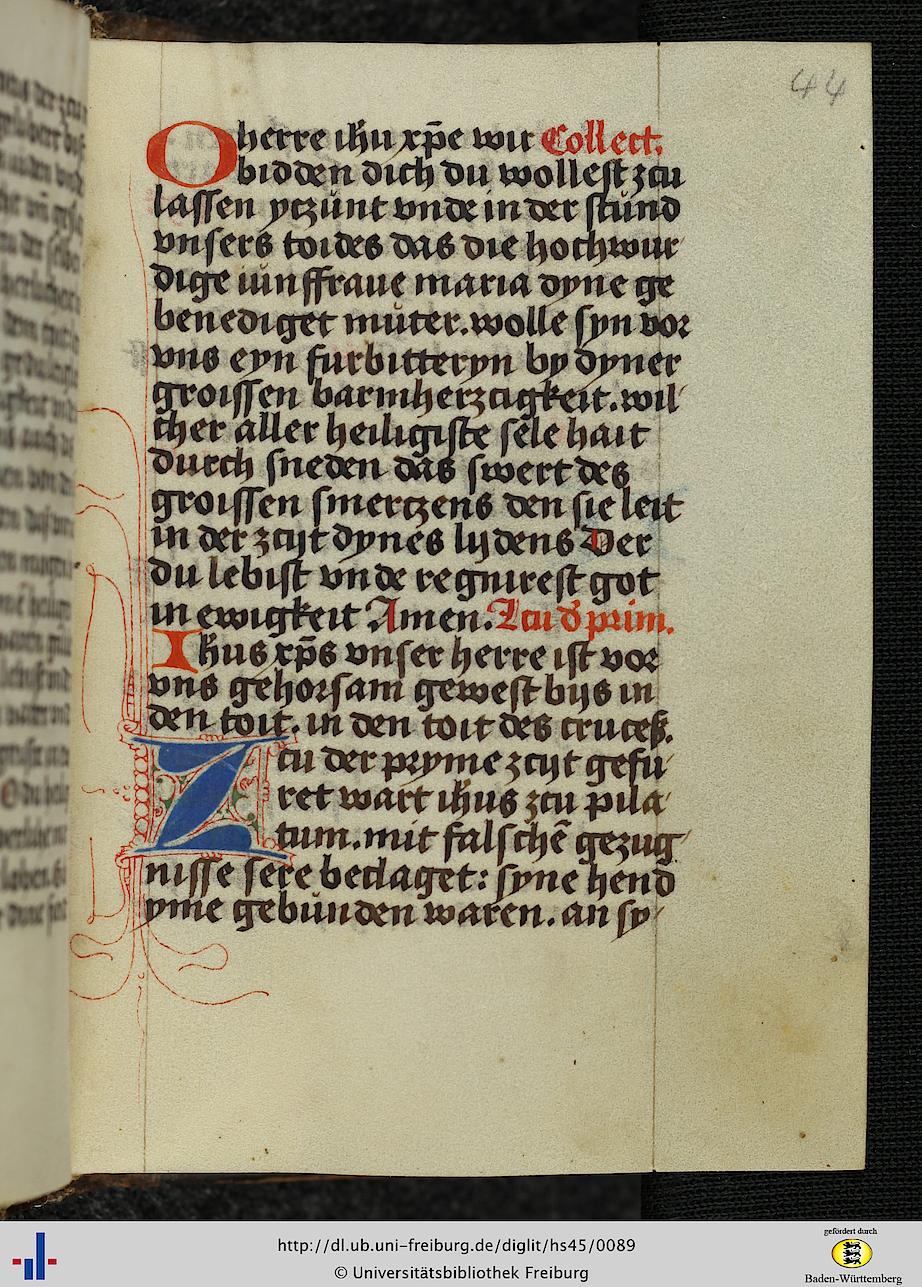 44
O herre ih̄u xp̄e wir Collect.
bidden dich du wollest zcu
lassen yczůnt vnde in der stůnd
vnsers toides das die hochwur
dige iůnffraue maria dyne ge
benediget můter. wolle syn vor
vns eyn furbitteryn by dyner
groissen barmherzcigkeit. wil
cher aller heiligiste sele hait
durch sneden das swert des
groissen smerczens den sie leit
in der zcijt dynes lijdens Der
du lebist vnde regnirest got
in ewigkeit Amen. Zcu d̄ prim.
Ih̄us xp̄s vnser herre ist vor
vns gehorsam gewest bijs in
den toit. in den toit des cruceß.
Zcu der pryme zcijt gefu
ret wart ih̄us zcu pila
tum. mit falschē gezug
nisse sere beclaget: syne hend
yme gebůnden waren. an sy
http://dl.ub.uni-freiburg.de/diglit/hs45/0089
© Universitätsbibliothek Freiburg
gefördert durch
Baden-Württemberg